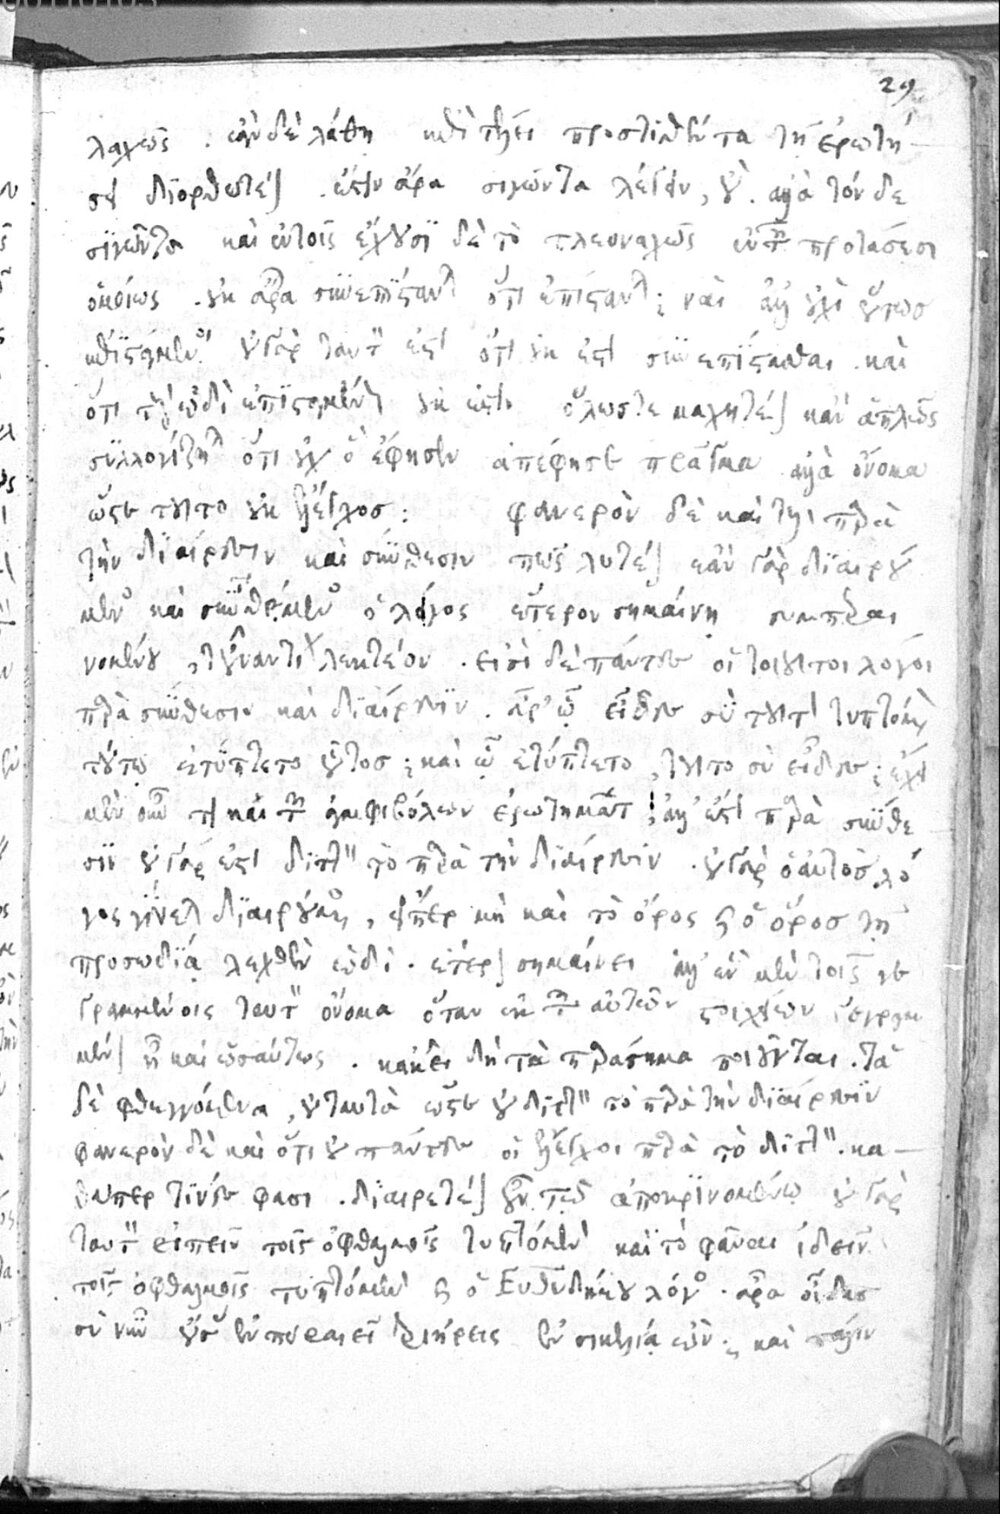 λαχῶς . ἐὰν δὲ λάθη ἐπὶ τέλει προστιθέντα τῆ ἐρωτή
σει διορθωτέον . ἔστιν ἄρα σιγῶντα λέγειν , οὔ . ἀλλὰ τόν δε
σϊγῶντα καὶ ἐν τοῖς ἔχουσϊ δὲ τὸ πλεοναχῶς ἐν ταῖς προτάσεσι
ὁμοίως . οὐκ ἆρα συνεπίστανται ὅτι ἐπίστανται ; ναὶ ἀλλ' οὐχὶ οὕτωσ
ἐπϊστάμενοι οὐ γὰρ ταυτόν ἐστι ὅτι οὐκ ἔστι συνεπίστασθαι . καὶ
ὅτι τοὺς ὡδὶ ἐπϊσταμένους οὐκ ἔστιν ὅλωστε μαχητέον κἂν ἁπλῶς
συλλογίζηται ὅτι οὐχ ὃ ἔφησεν ἀπέφησε πρᾶγμα ἀλλὰ ὄνομα
ὥστε τουτο οὐκ ἔλεγχοσ : φανερὸν δὲ καὶ τοὺς παρὰ
τὴν διαίρεσιν καὶ σύνθεσιν πῶς λυτέον ἐὰν γὰρ διαιρού
μενος καὶ συντιθέμενος ὁ λόγος ἕτερον σημαίνη συμπεραι
νομένου , τοὐναντίον λεκτέον . εἰσὶ δὲ πάντες οἱ τοιουτοι λόγοι
παρὰ σύνθεσιν καὶ διαίρεσιν . ἆρ' ὧ εἶδες σὺ τουτον τυπτόμενον
τούτω ἐτύπτετο οὗτοσ ; καὶ ὧ ἐτύπτετο , τουτο σὺ εἶδες ; ἔχει
μὲν οὖν τι καὶ τῶν ἀμφιβόλων ἐρωτημάτων ἀλλ' ἐστὶ παρὰ σύνθε
σιν οὐ γάρ ἐστι διττὸν τὸ παρὰ τὴν διαίρεσιν . οὐ γὰρ ὁ αὐτὸσ λό
γος γίνεται διαιρούμενος , εἴπερ μὴ καὶ τὸ ὄρος καὶ ὁ ὅροσ τῆ
προσωδία λεχθὲν ὡδὶ . ἕτερον σημαίνει ἀλλ' ἐν μὲν τοῖς γε
γραμμένοις ταυτὸν ὄνομα ὅταν ἐκ τῶν αὐτῶν στοιχείων γεγραμ
μένον ἦ καὶ ὡσαύτως . κἀκεῖ δὴ τὰ παράσημα ποιοῦνται . τὰ
δὲ φθεγγόμενα , οὐ ταυτὰ ὥστε οὐ διττὸν τὸ παρὰ τὴν διαίρεσιν
φανερὸν δὲ καὶ ὅτι οὐ πάντες οἱ ἔλεγχοι παρὰ τὸ διττὸν . κα
θάπερ τινές φασι . διαιρετέον οὖν τῶ ἀποκρινομένω οὐ γὰρ
ταυτὸν εἰπεῖν τοῖς ὀφθαλμοῖς τυπτόμενον καὶ τὸ φᾶναι ἰδεῖν
τοῖς ὀφθαλμοῖς τυπτόμενον καὶ ὁ Εὐθυδήμου λόγος . ἆρα οἶδασ
σὺ νῦν οὔσας ἐν πειραιεῖ τριήρεις ἐν σικελία ὤν ; καὶ πάλιν